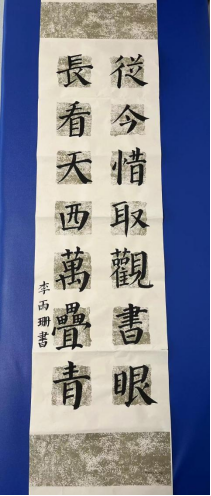 從今惜取觀書眼
長看天西萬疊青
李雨珊書